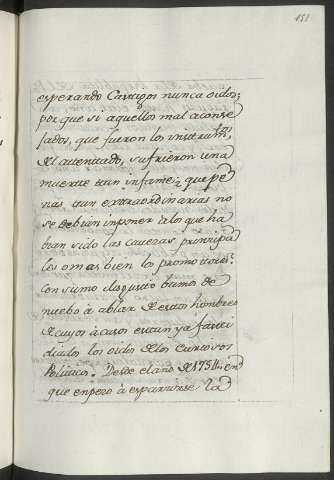 151
esperando Castigos nunca oidos;
por que si aquellos mal aconse
jados, que fueron los instrum.tos
del atentado, sufrieron una
muerte tan infame; que pe
nas tan extraordinarias no
se debian imponer a los que ha
bian sido las cavezas prinzipa
les o mas bien los promotores:
Con sumo disgusto bamos de
nuebo à ablar de estos hombres
de cuyos à casos estan ya fasti
diados los oidos de los curiosos
Politicos. Desde el año de 1754. en
que enpezo à esparzirse la